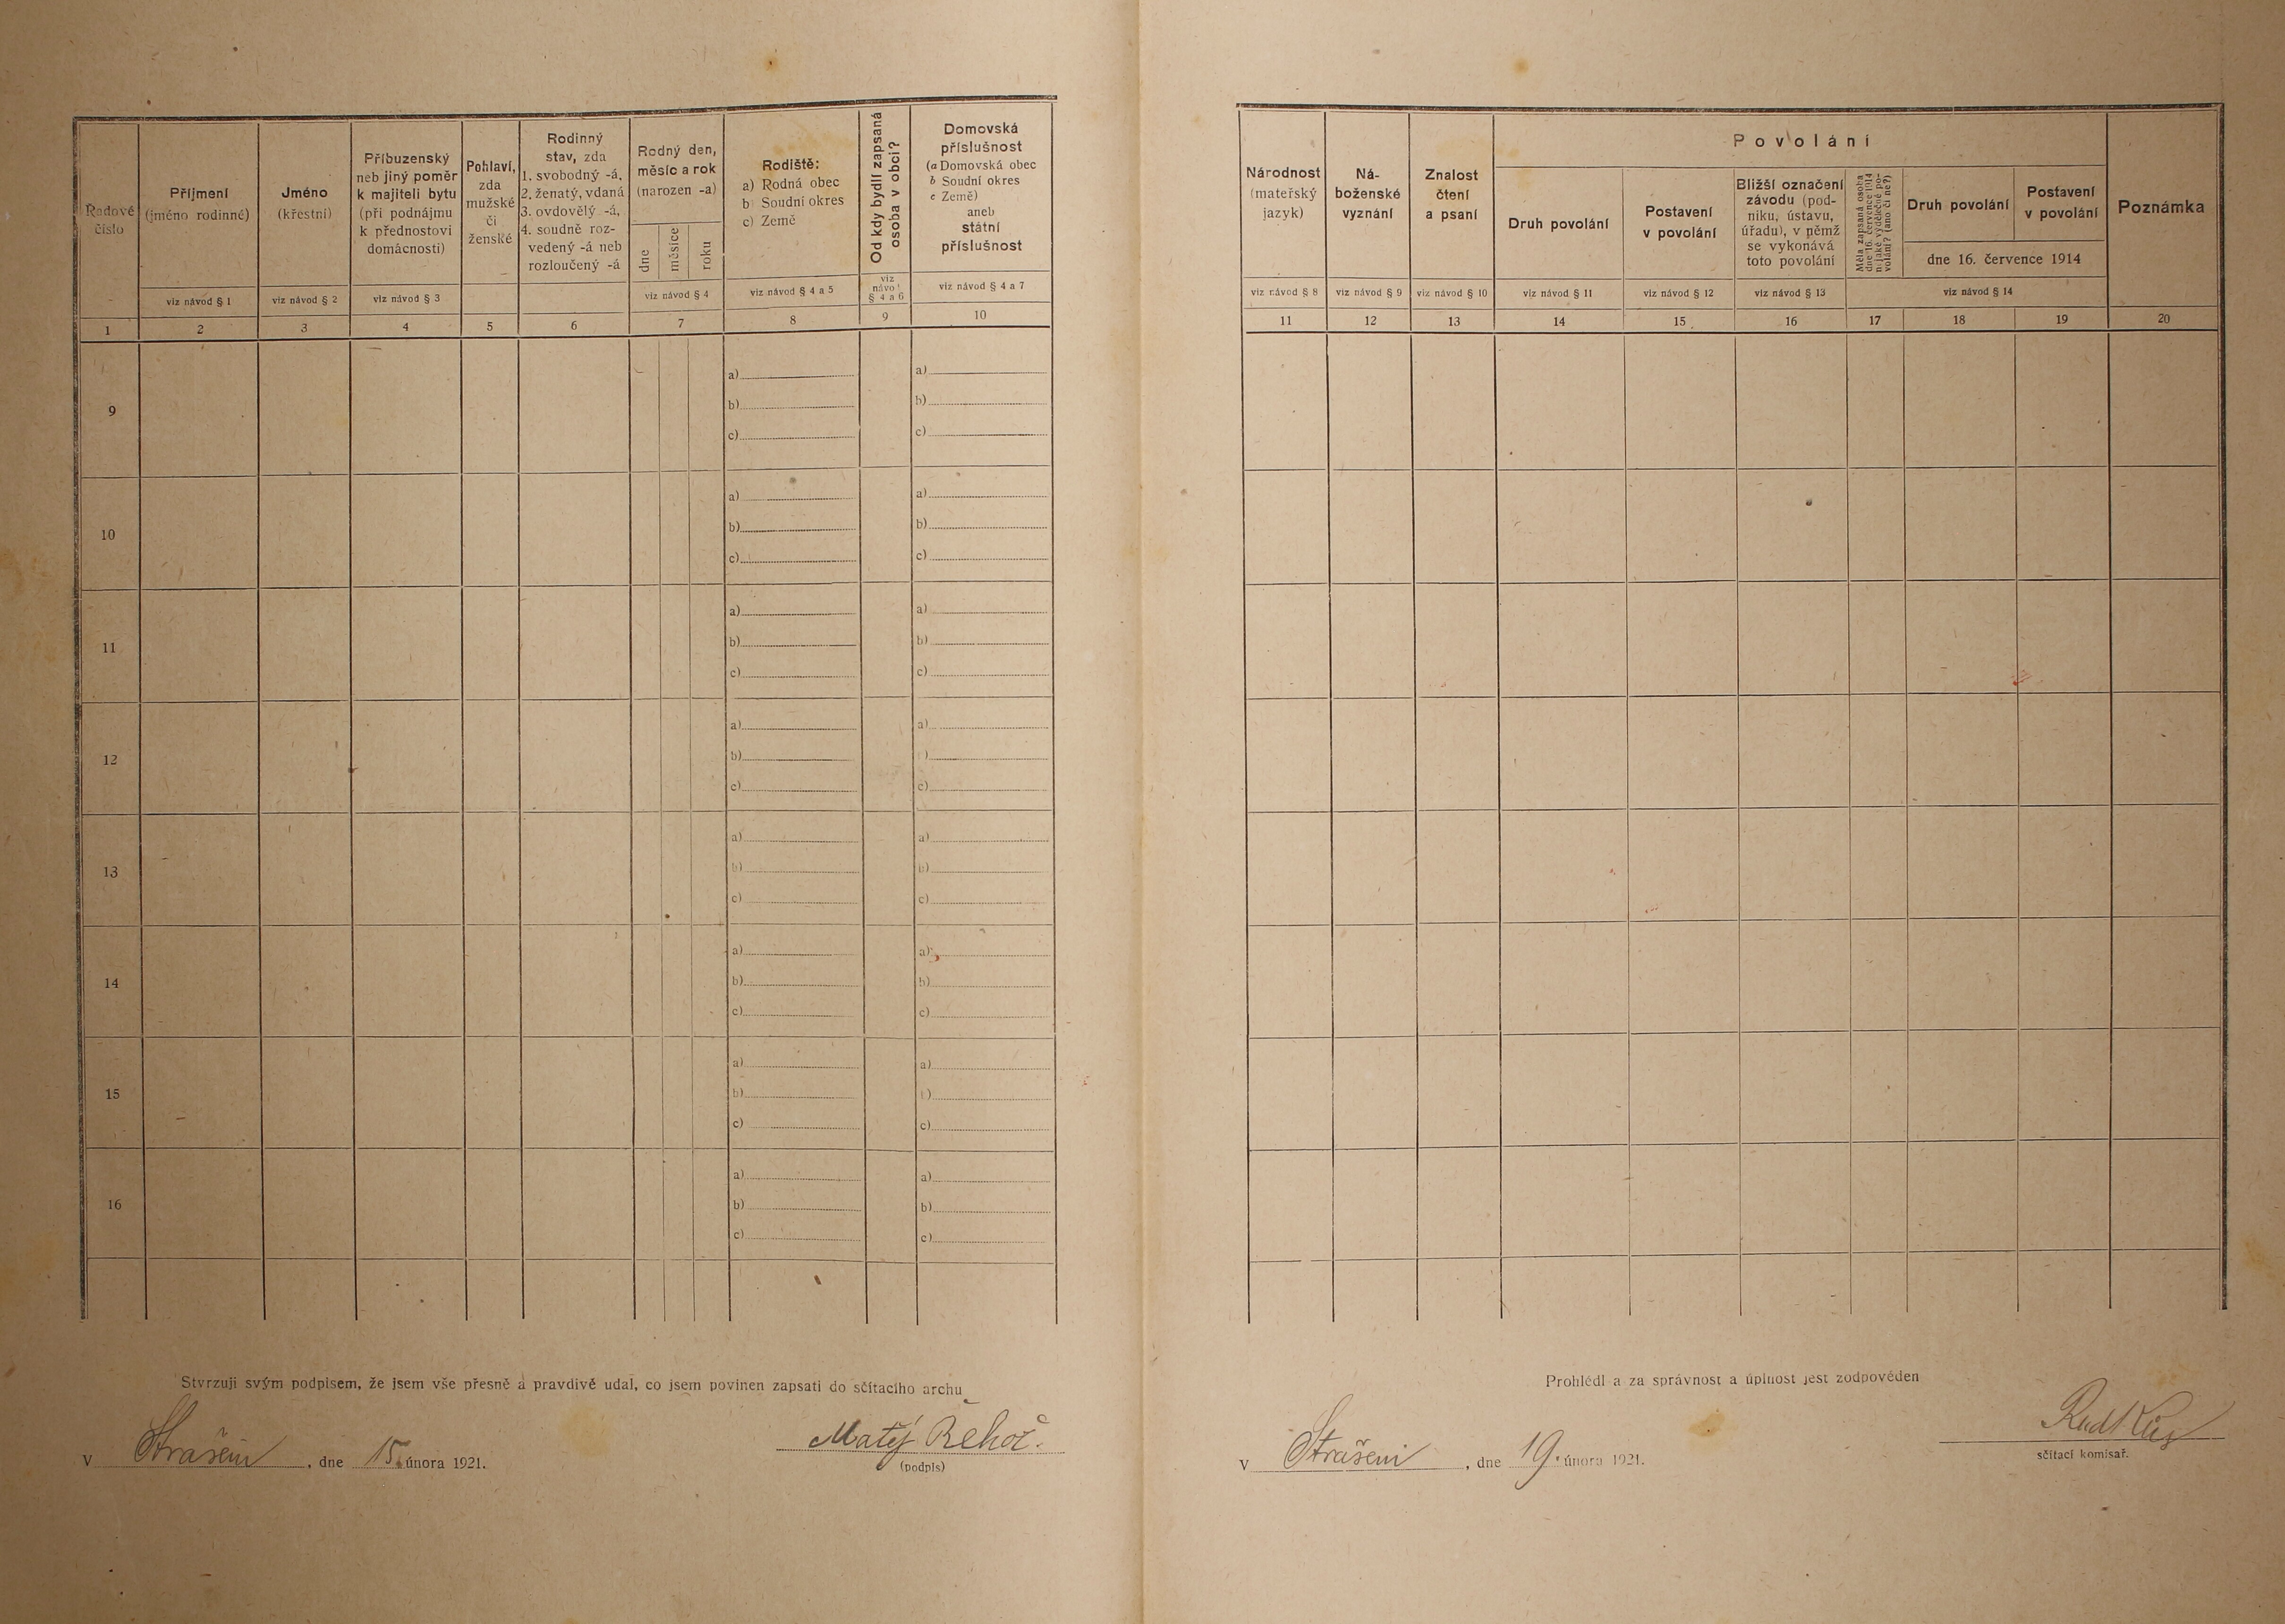 Řadové
číslo
Příjmení
(jméno rodinné)
viz návod § 1
Jméno
(křestní)
viz návod § 2
Příbuzenský
neb jiný poměr
k majiteli bytu
(při podnájmu
k přednostovi
domácnosti)
viz návod § 3
Pohlaví,
zda
mužské
či
ženské
Rodinný
stav, zda
1. svobodný -á,
2. ženatý, vdaná
3. ovdovělý -á,
4. soudně roz-
vedený -á neb
rozloučený -á
Rodný den,
měsíc a rok
(narozen -a)
dne
měsíce
roku
viz návod § 4
Rodiště:
a) Rodná obec
b) Soudní okres
c) Země
viz návod § 4 a 5
Od kdy bydlí zapsaná
osoba v obci?
viz
návod
§ 4 a 6
Domovská
příslušnost
(a Domovská obec
b Soudní okres
c Země)
aneb
státní
příslušnost
viz návod § 4 a 7
1 2 3 4 5 6 7 8 9 10
9
a) a)
b) b)
c) c)
10
a) a)
b) b)
c) c)
11
a) a)
b) b)
c) c)
12
a) a)
b) )
c) c)
13
a) a)
b) b)
c) c)
14
a) a)
b) b)
c) c)
15
a) a)
b) )
c) c)
16
a) a)
b) b)
c) c)
Stvrzuji svým podpisem, že jsem vše přesně a pravdivě udal, co jsem povinen zapsati do sčítacího archu
v Strašení, dne 15. února 1921.
Matěj Řehoř.
(podpis)
Národnost
(mateřský
jazyk)
viz návod § 8
Ná-
boženské
vyznání
viz návod § 9
Znalost
čtení
a psaní
viz návod § 10
Povolání
Druh povolání
viz návod § 11
Postavení
v povolání
viz návod § 12
Bližší označení
závodu (pod-
niku, ústavu,
úřadu), v němž
se vykonává
toto povolání
viz návod § 13
Měla zapsaná osoba
dne 16. července 1914
nějaké výdělečné po-
volání? (ano či ne?)
Druh povolání
Postavení
v povolání
dne 16. července 1914
viz návod § 14
Poznámka
11 12 13 14 15 16 17 18 19 20
Prohlédl a za správnost a úplnost jest zodpověden
v Strašení, dne 19. února 1921.
sčítací komisař.